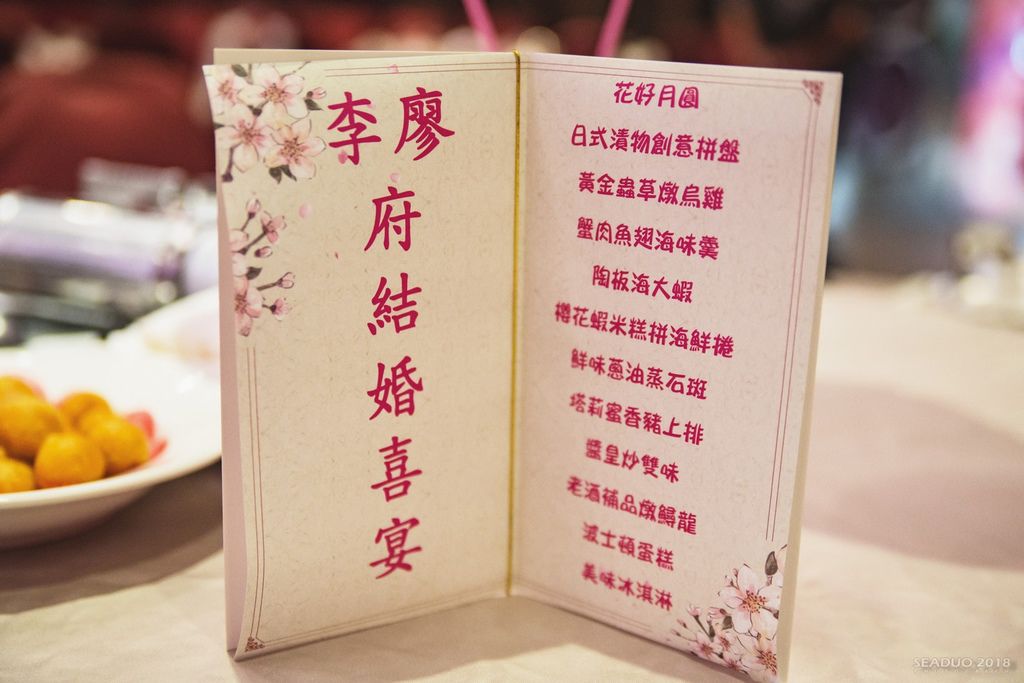 李 廖
府結婚喜宴
花好月圓
日式漬物創意拼盤
黃金蟲草燉烏雞
蟹肉魚翅海味羹
陶板海大蝦
樽花蝦米糕拼海鮮捲
鮮味蔥油蒸石斑
塔莉蜜香豬上排
醬皇炒雙味
老酒補品燉鱘龍
波士頓蛋糕
美味冰淇淋
SEADUO 2018